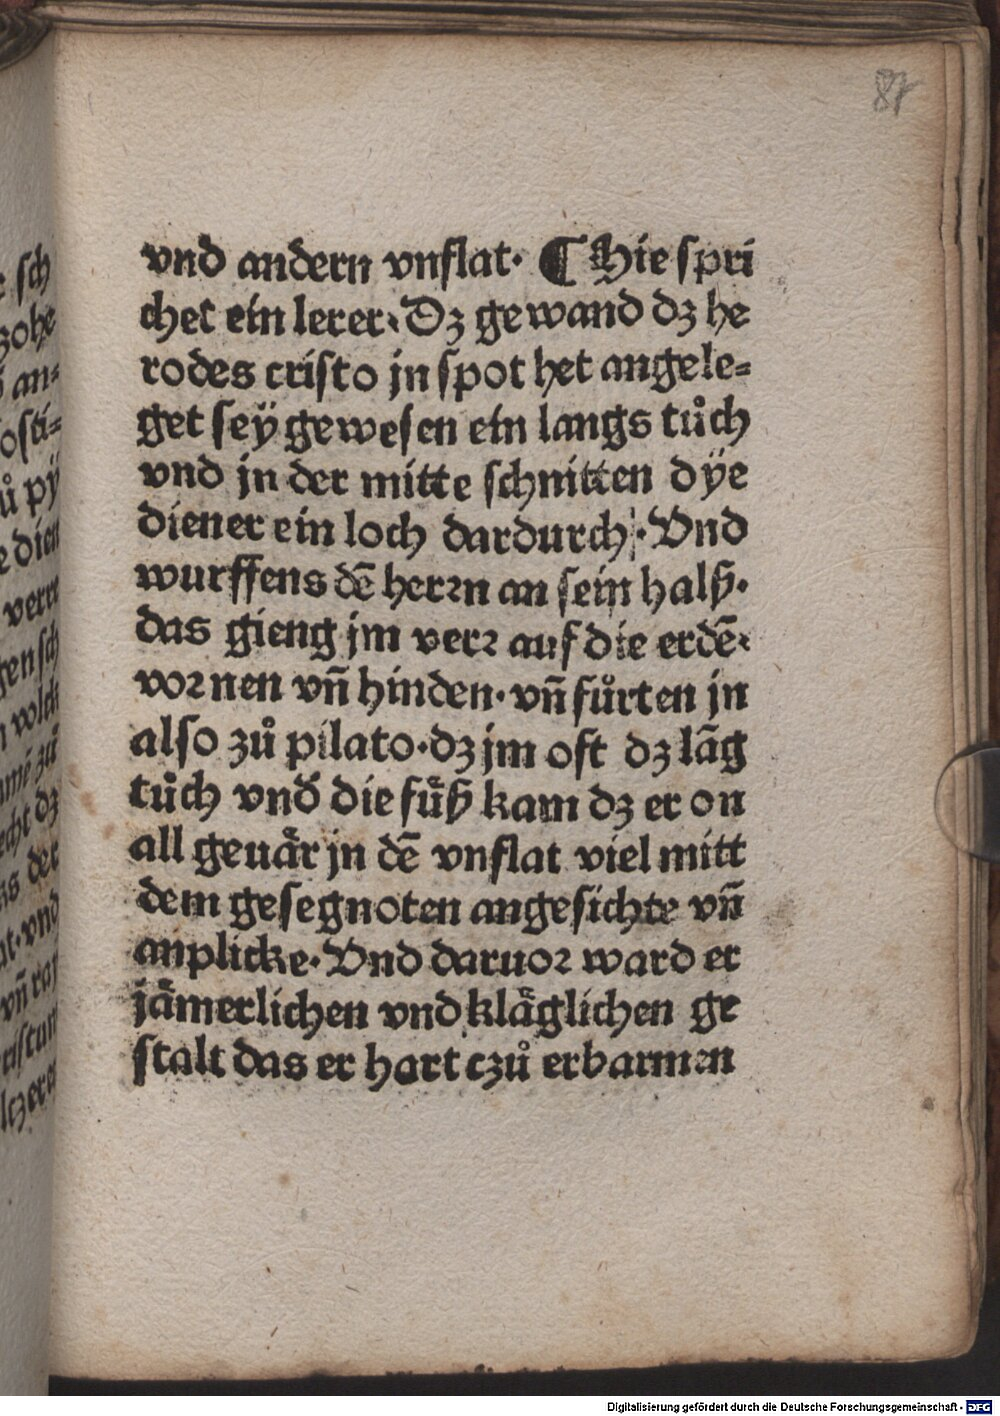 87
vnd andern vnflat· ¶ Hie spri
chet ein lerer· Dz gewand dz he
rodes cristo jn spot het angele⸗
get seÿ gewesen ein langs tůch
vnd jn der mitte schnitten dÿe
diener ein loch dardurch· Vnd
wurffens dē herrn an sein halß·
das gieng jm verr auf die erdē·
vornen vñ hinden· vñ fůrten jn
also zů pilato· dz jm oft dz lāg
tůch vnď die fuͤß kam dz er on
all geuaͤr jn dē vnflat viel mitt
dem gesegnoten angesichte vñ
anplicke· Vnd daruor ward er
jaͤmerlichen vnd klaͤglichen ge
stalt das er hart czů erbarmen
Digitalisierung gefördert durch die Deutsche Forschungsgemeinschaft - DFG